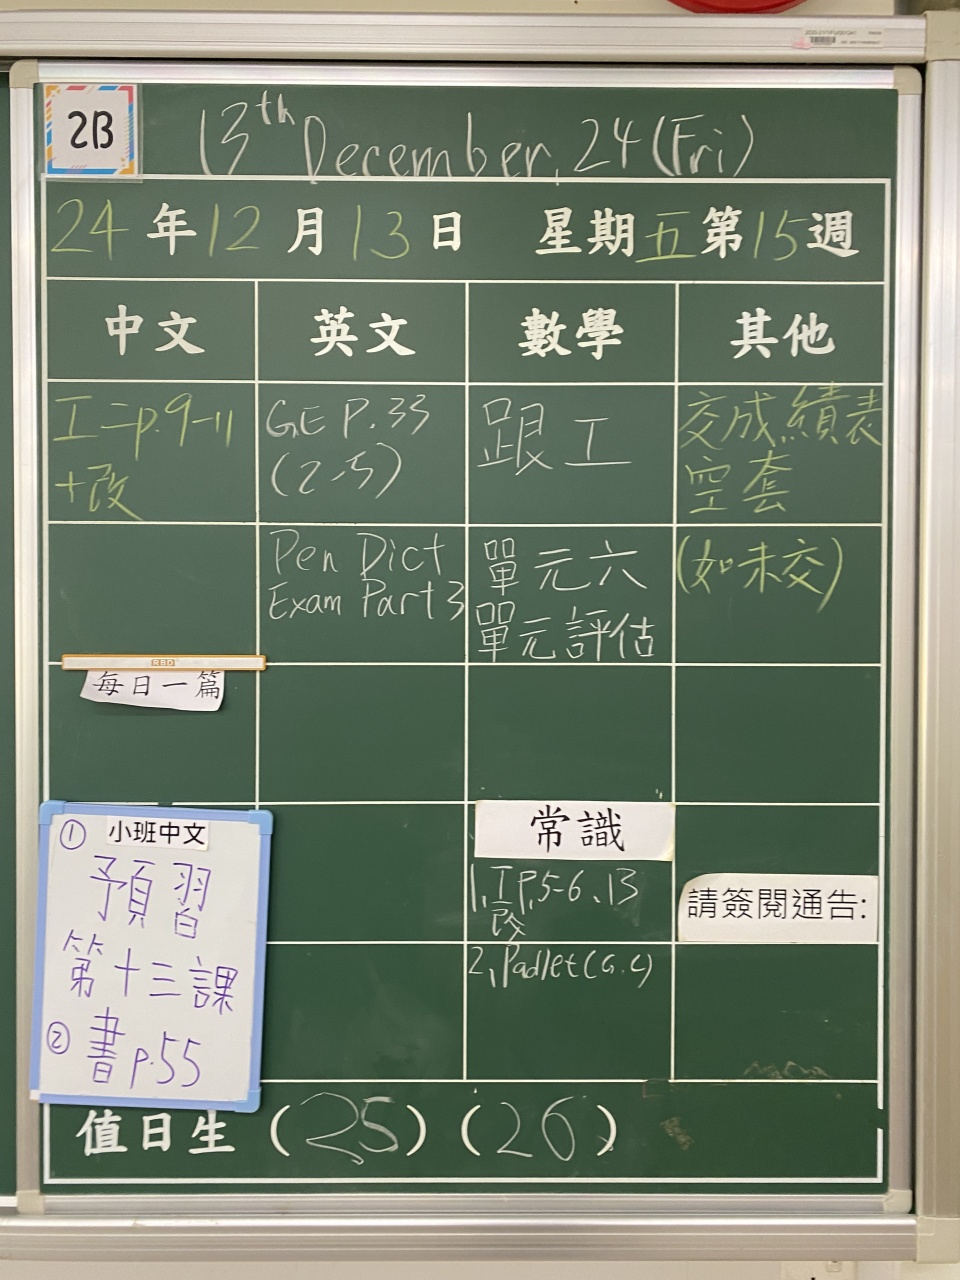 2B
13th December, 24 (Fri)
24 年 12 月 13 日 星期五第15週
中文 英文 數學 其他
工二p.9-11
+改
G.E P.33
(2-5)
跟工
交成績表
空套
Pen Dict
Exam Part 3
單元六
單元評估
(如未交)
RBD
每日一篇
① 小班中文
預習
第十三課
② 書p.55
常識
1, 工P.5-6、13
改
2, Padlet (G.C)
請簽閱通告:
值日生 (25) (26)